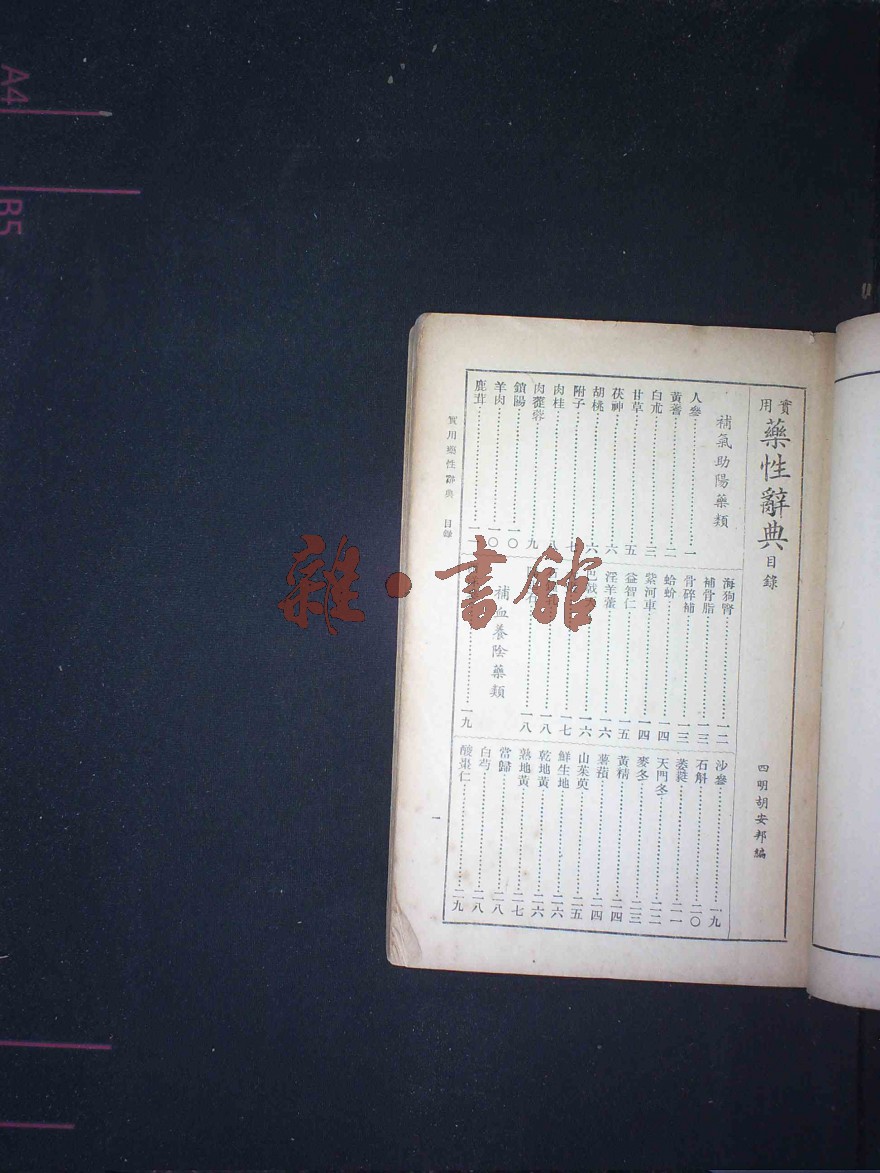 實用藥性辭典目錄 四明胡安邦編
補氣助陽藥類
人參……一
黃耆……二
白朮……三
甘草……五
茯神……六
胡桃……六
附子……七
肉桂……八
肉蓯蓉……九
鎖陽……一〇
羊肉……一〇
鹿茸……一一
海狗腎……一二
補骨脂……一三
骨碎補……一三
蛤蚧……一四
紫河車……一四
益智仁……一五
淫羊藿……一六
巴戟……一六
……一七
……一八
……一八
補血養陰藥類
……一九
沙參……一九
石斛……二〇
萎蕤……二一
天門冬……二二
麥冬……二三
黃精……二四
薯蕷……二四
山茱萸……二五
鮮生地……二六
乾地黃……二六
熟地黃……二七
當歸……二八
白芍……二八
酸棗仁……二九
實用藥性辭典 目錄
一
雜·書館
A4
B5